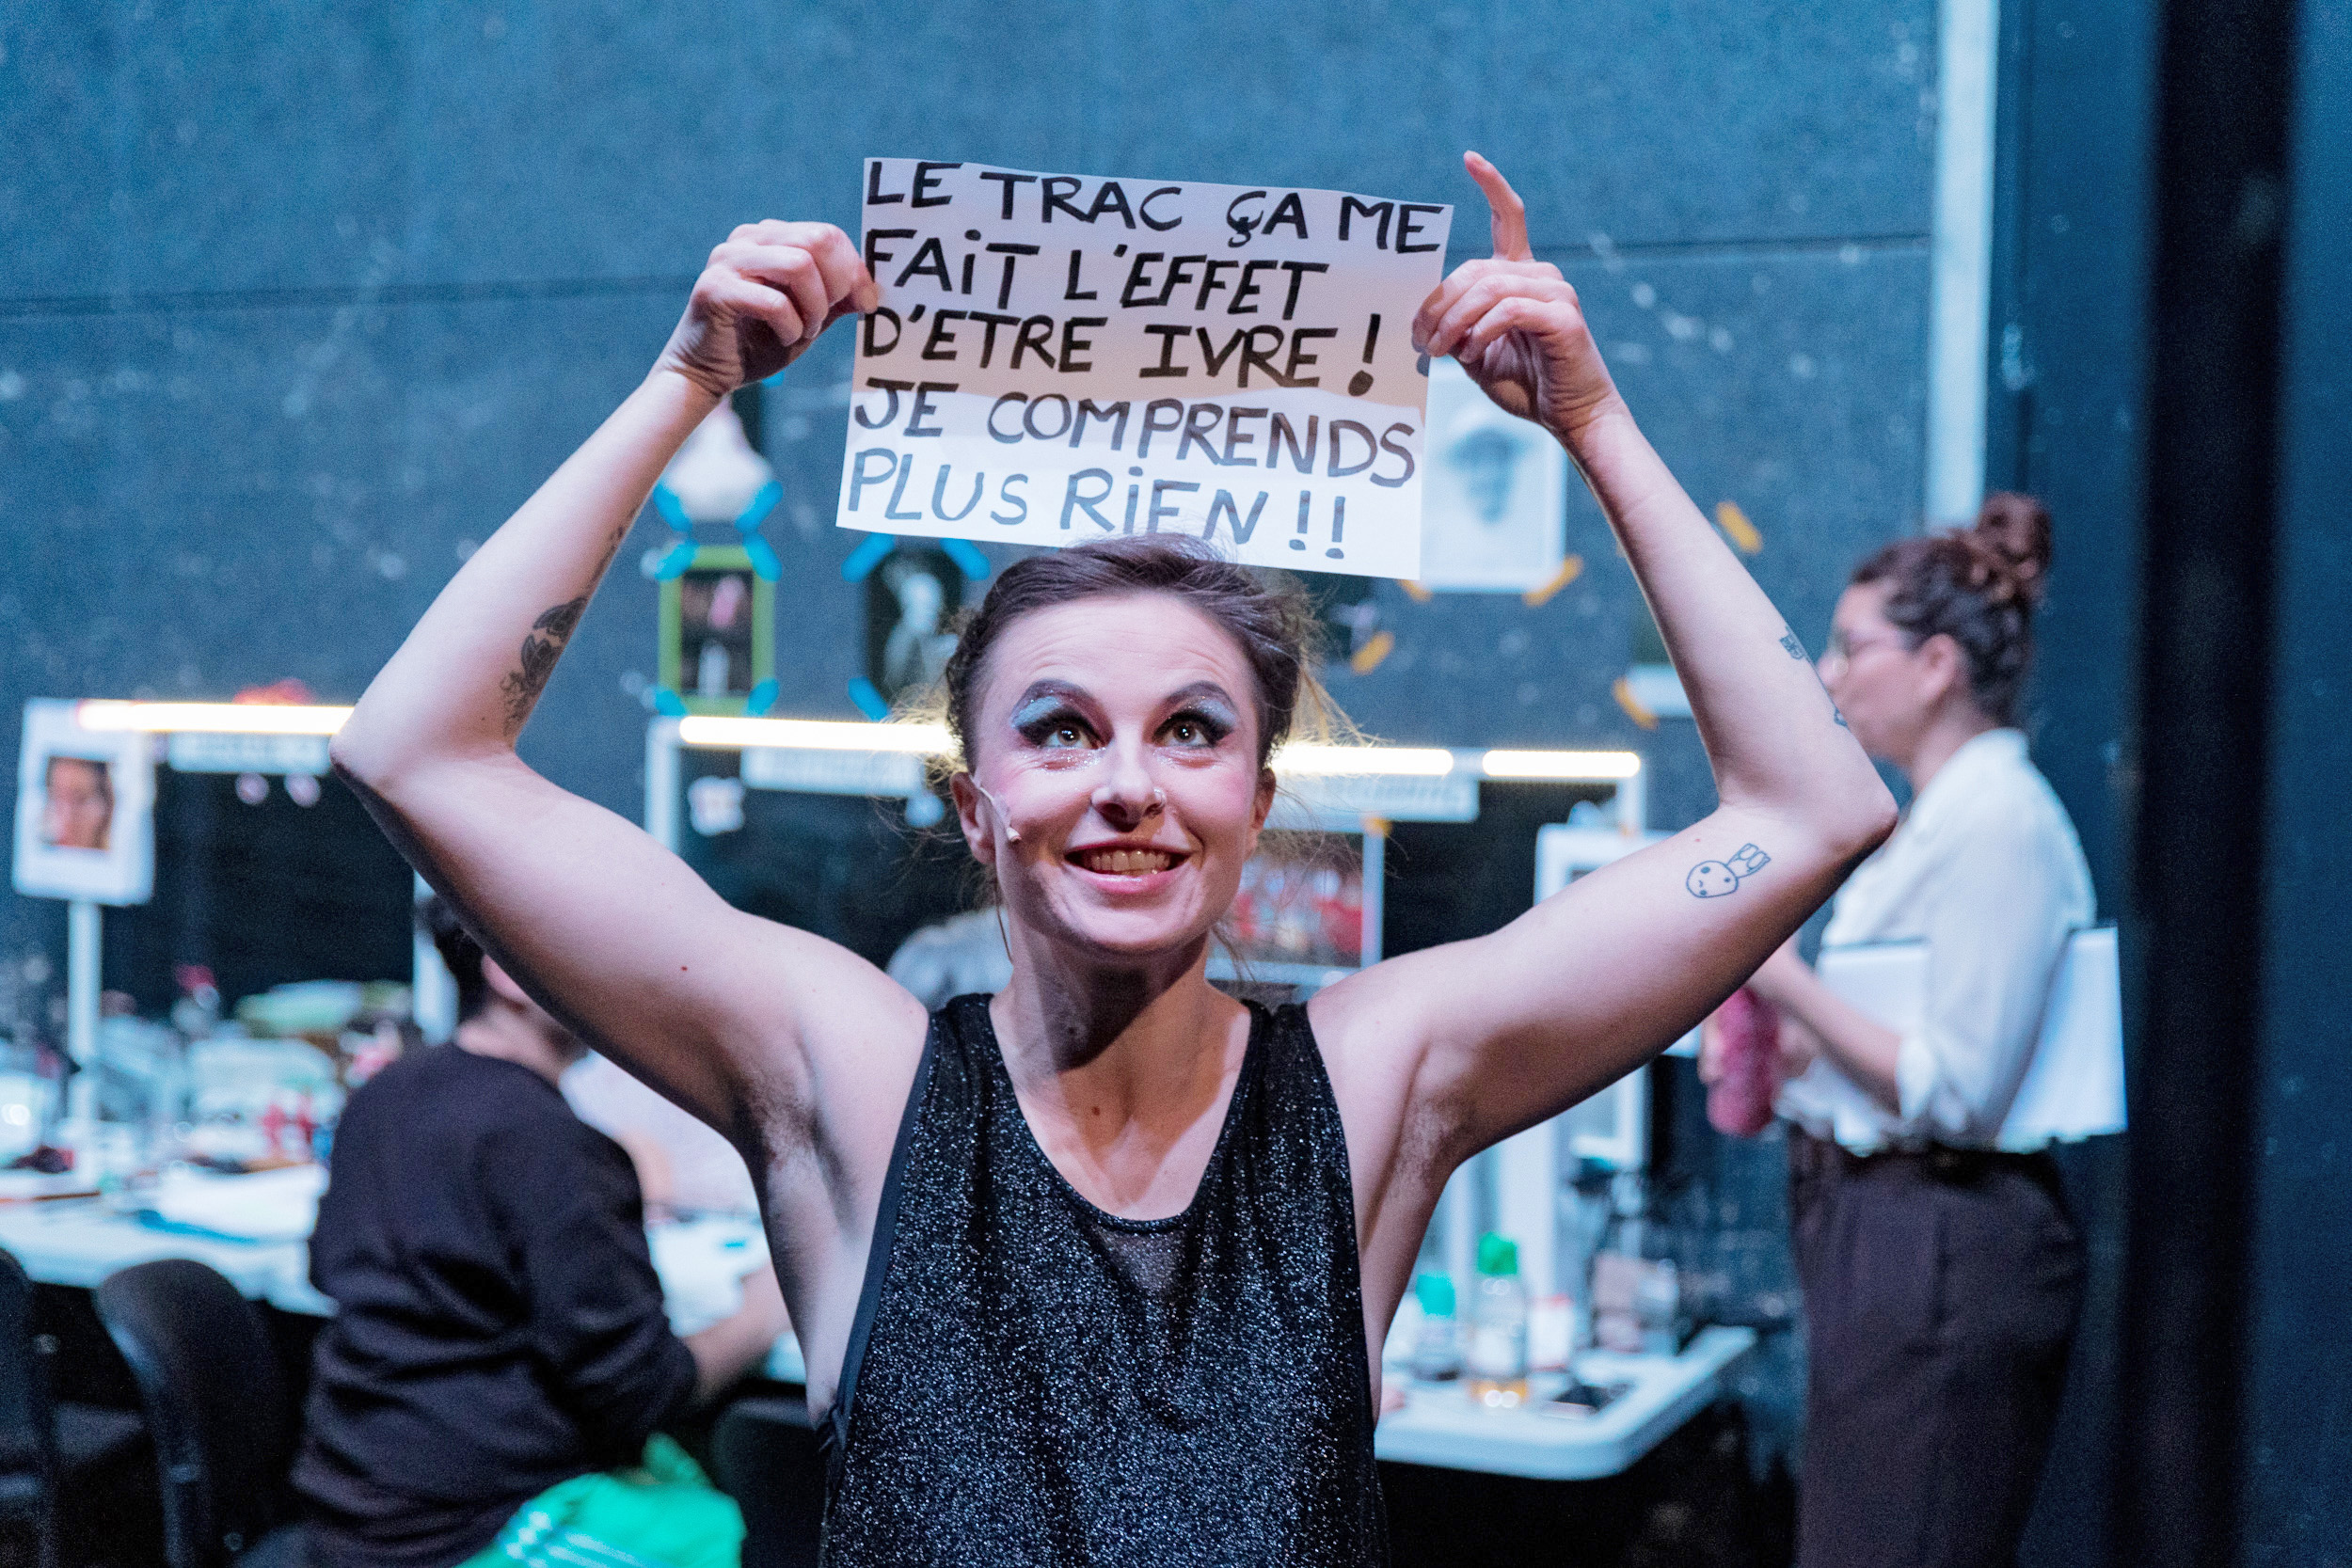 LE TRAC ÇA ME
FAiT L'EFFET
D'ETRE IVRE !
JE COMPRENDS
PLUS RiEN !!